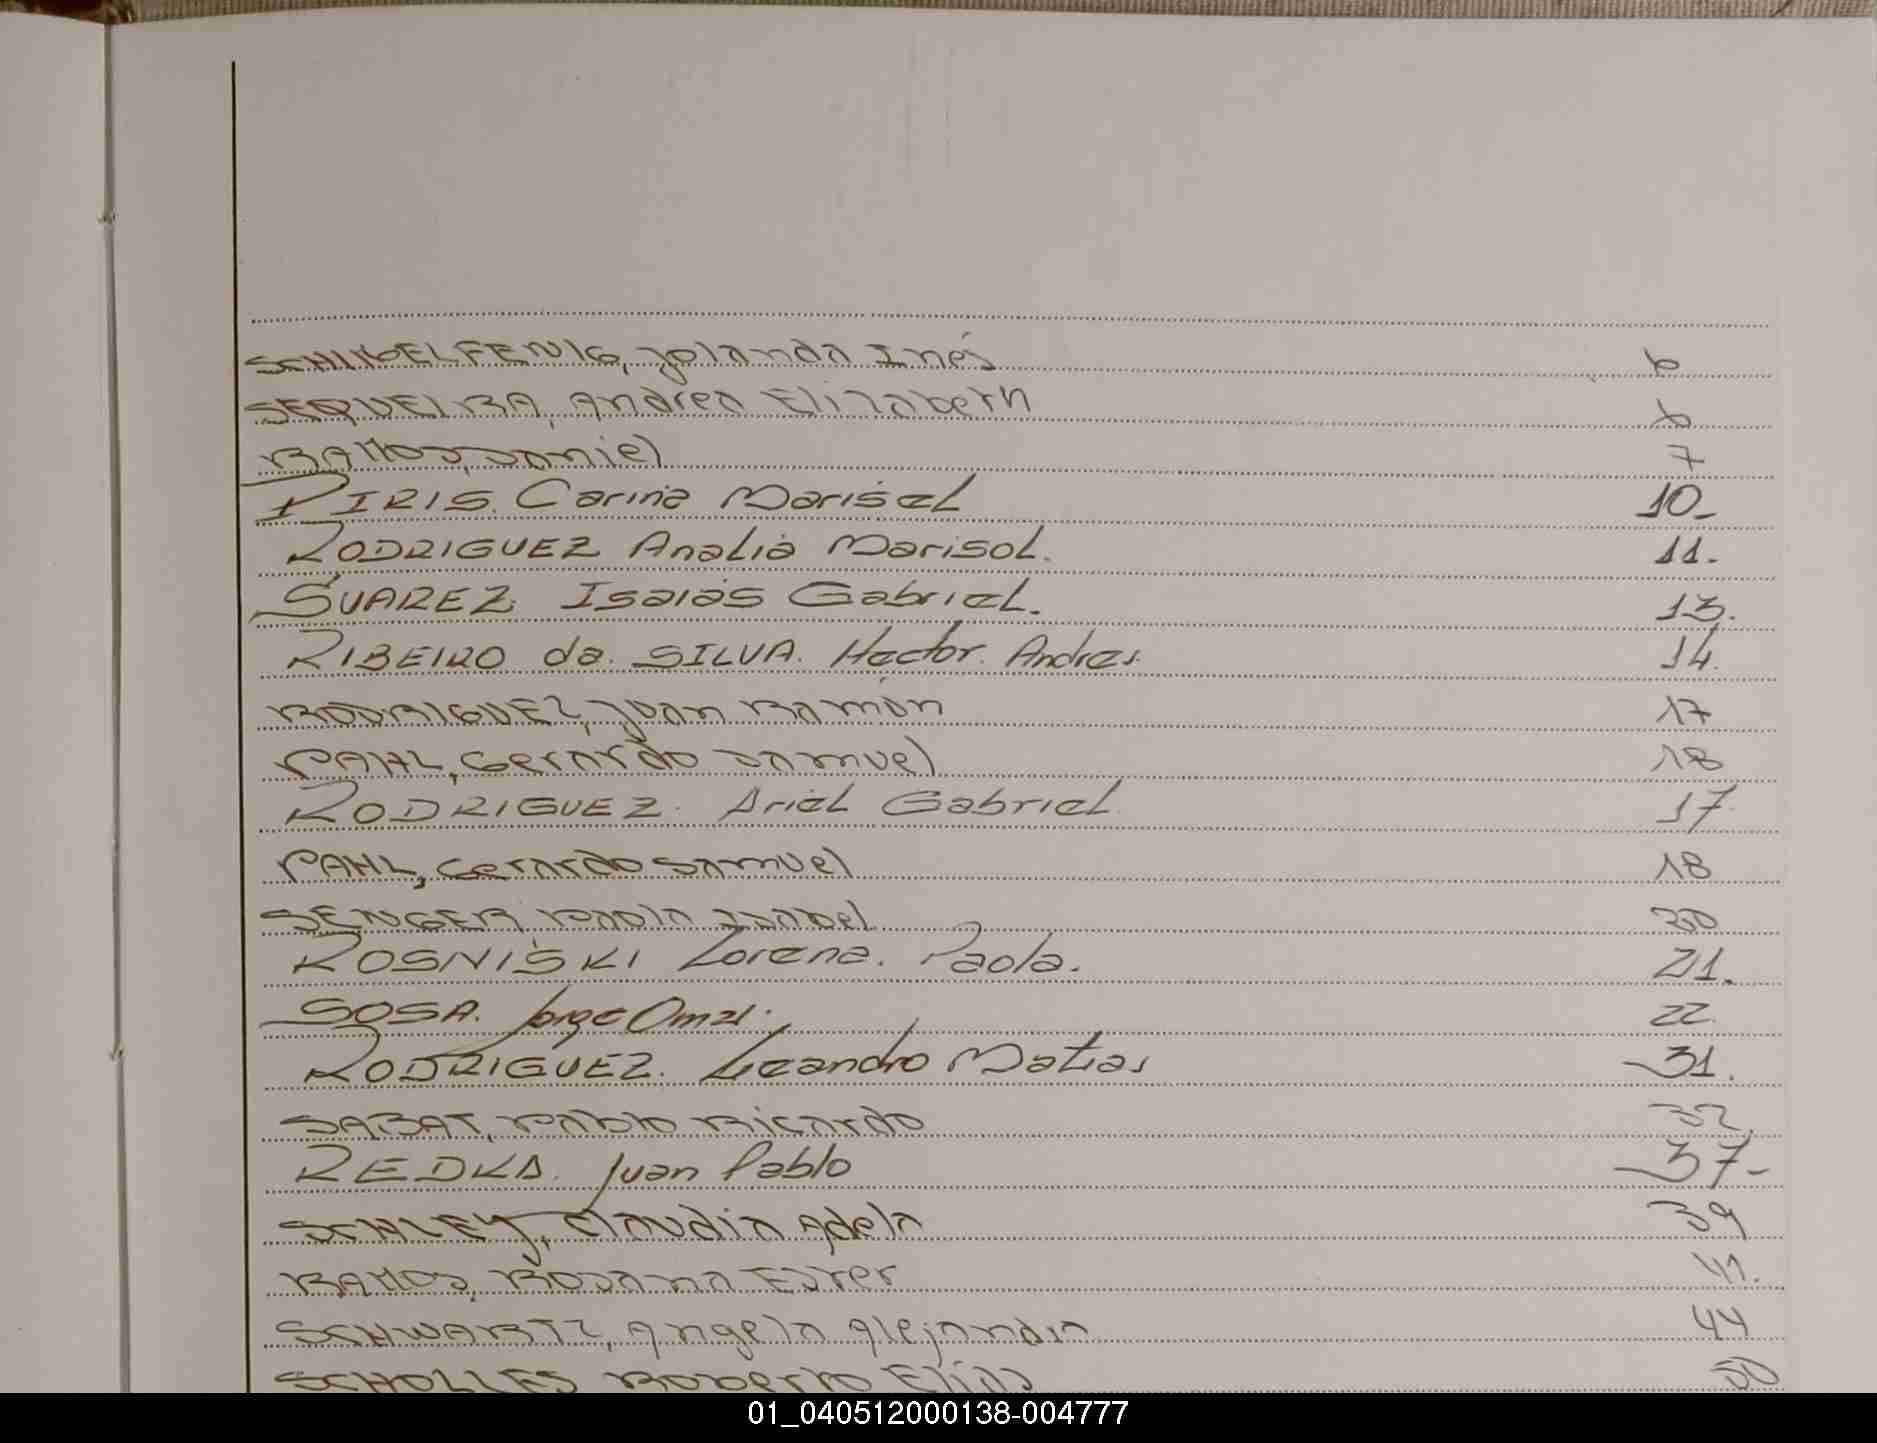 SCHIMPELFENIG, Jolanda Inés 6
SEQUEIRA, Andrea Elizabeth 6
RAMOS, Daniel 7
PIRIS. Carina Marisel 10-
RODRIGUEZ Analia Marisol. 11.
SUAREZ. Isaias Gabriel. 13.
RIBEIRO da. SILVA. Hector. Andres. 14.
RODRIGUEZ, Juan Ramón 17
PAHL, Gerardo Samuel 18
RODRIGUEZ. Ariel Gabriel. 17.
PAHL, Gerardo Samuel 18
SENGER, Paola Isabel 20
ROSNISKI Lorena. Paola. 21.
SOSA. Jorge Omar. 22.
RODRIGUEZ. Leandro Matias -31.
SABAT, Pablo Ricardo 32.
REDKA. Juan Pablo -37-
SCHLEY, Claudia Adela 39
RAMOS, Rosana Ester 41.
SCHWARTZ, Angela Alejandra 44
SCHOLLES Roberto Elías 50
01_040512000138-004777